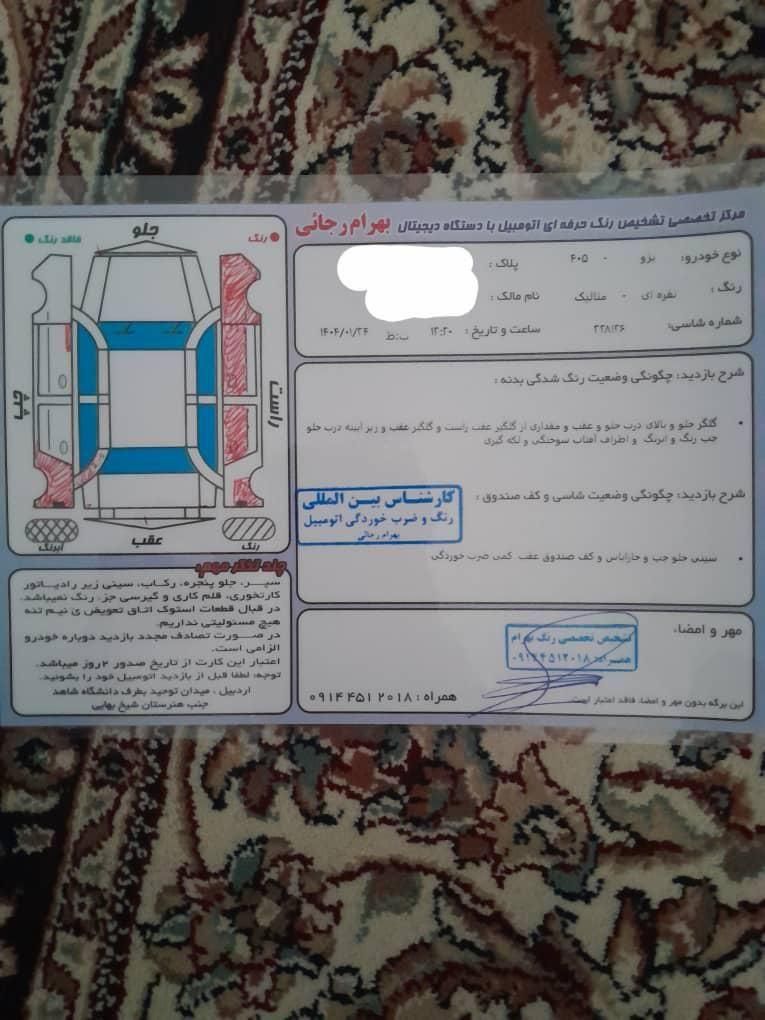 مرکز تخصصی تشخیص رنگ حرفه ای اتومبیل با دستگاه دیجیتال بهرام رجائی
نوع خودرو: پژو - ۴۰۵ پلاک :
رنگ : نقره ای - متالیک نام مالک :
شماره شاسی: ۲۲۸۱۲۶ ساعت و تاریخ : ۱۲:۲۰ ب:ظ ۱۴۰۴/۰۱/۲۴
شرح بازدید: چگونگی وضعیت رنگ شدگی بدنه :
• گلگر جلو و بالای درب جلو و عقب و مقداری از گلگیر عقب راست و گلگیر عقب و زیر آیینه درب جلو
چپ رنگ و ابرنگ و اطراف آفتاب سوختگی و لکه گیری
شرح بازدید: چگونگی وضعیت شاسی و کف صندوق :
کارشناس بین المللی
رنگ و ضرب خوردگی اتومبیل
بهرام رجائی
• سینی جلو چپ و کف صندوق عقب کمی ضرب خوردگی
مهر و امضاء:
تشخیص تخصصی رنگ بهرام
همراه: ۰۹۱۴۴۵۱۲۰۱۸
این برگه بدون مهر و امضاء فاقد اعتبار است.
همراه : ۰۹۱۴ ۴۵۱ ۲۰۱۸
رنگ
فاقد رنگ
جلو
راست
چپ
عقب
رنگ
آبرنگ
چند تذکر مهم:
سپر، جلو پنجره، رکاب، سینی زیر رادیاتور
کارتخوری، قلم کاری و گیرسی جز، رنگ نمیباشد.
در قبال قطعات استوک اتاق تعویض ی نیم تنه
هیچ مسئولیتی نداریم.
در صورت تصادف مجدد بازدید دوباره خودرو
الزامی است.
اعتبار این کارت از تاریخ صدور ۲ روز میباشد.
توجه: لطفا قبل از بازدید اتومبیل خود را بشوئید.
اردبیل ، میدان توحید بطرف دانشگاه شاهد
جنب هنرستان شیخ بهایی